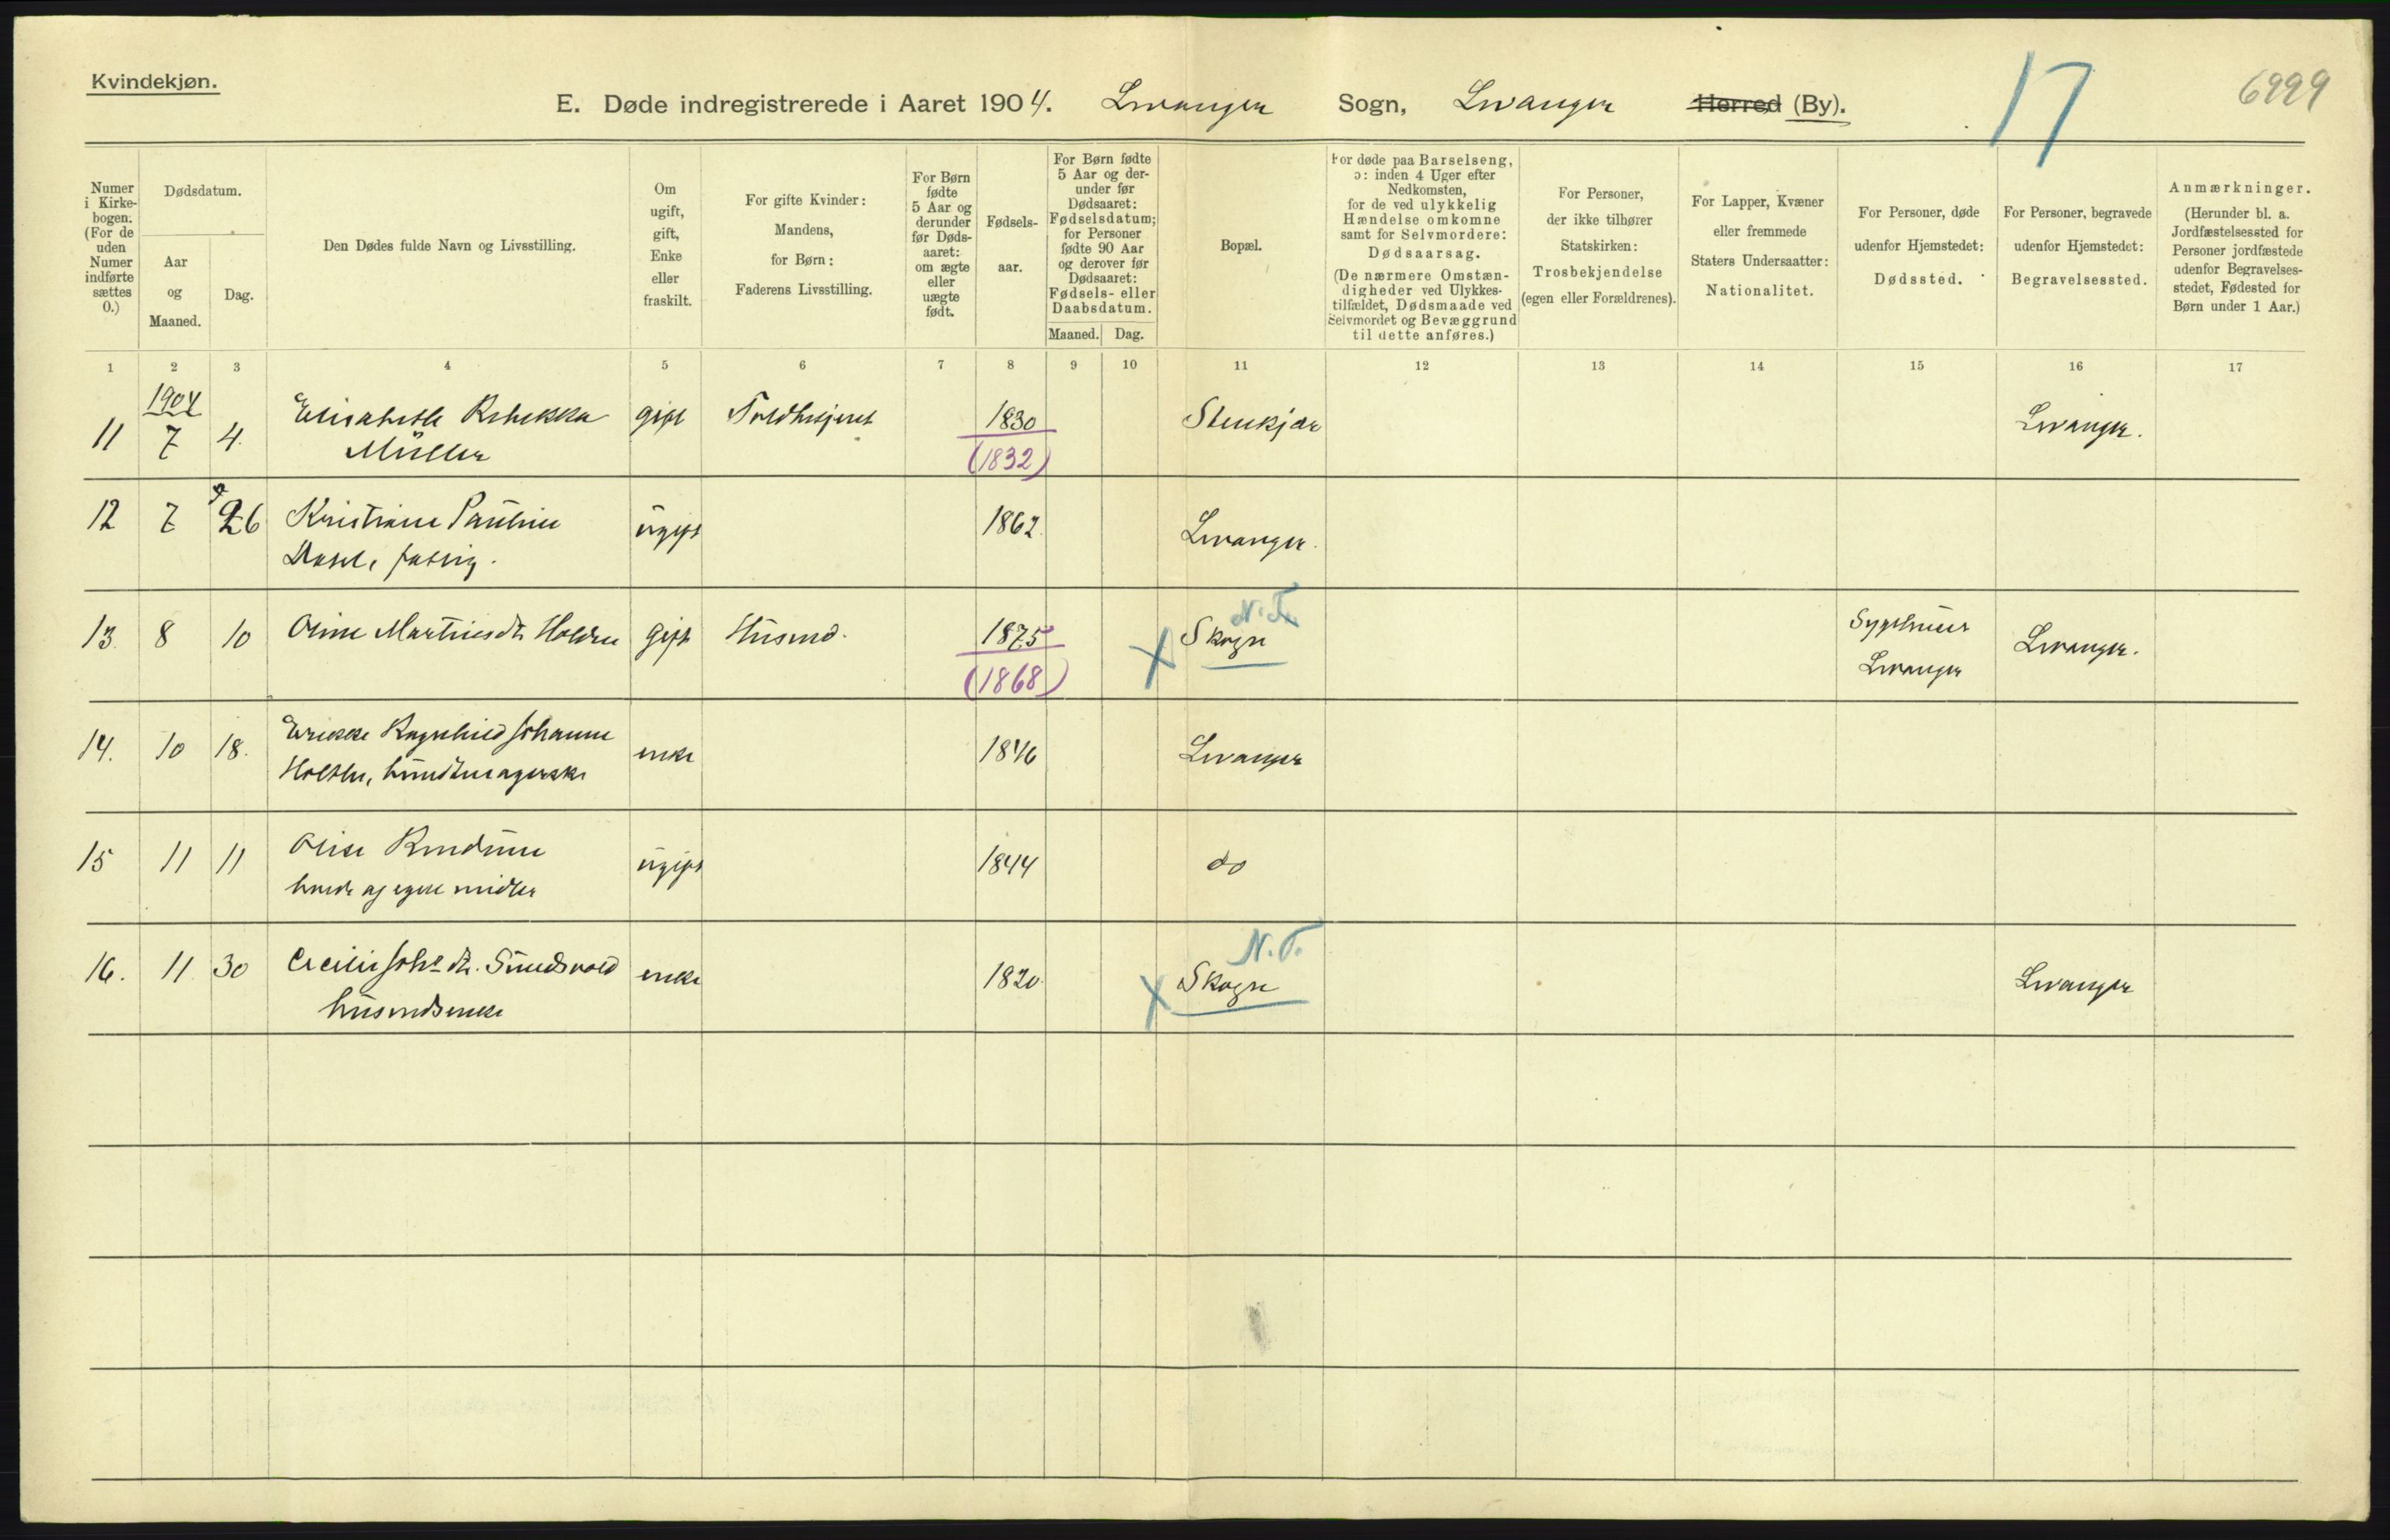 Kvindekjøn.
E. Døde indregistrerede i Aaret 1904. Levanger Sogn, Levanger Herred (By). 17 6999
Numer i Kirkebogen. (For de uden Numer indførte sættes 0.)
Dødsdatum.
Aar og Maaned.
Dag.
Den Dødes fulde Navn og Livsstilling.
Om ugift, gift, Enke eller fraskilt.
For gifte Kvinder: Mandens, for Børn: Faderens Livsstilling.
For Børn fødte 5 Aar og derunder før Dødsaaret: om ægte eller uægte født.
Fødselsaar.
For Børn fødte 5 Aar og derunder før Dødsaaret: Fødselsdatum; for Personer fødte 90 Aar og derover før Dødsaaret: Fødsels- eller Daabsdatum.
Maaned. Dag.
Bopæl.
For døde paa Barselseng, ɔ: inden 4 Uger efter Nedkomsten, for de ved ulykkelig Hændelse omkomne samt for Selvmordere: Dødsaarsag. (De nærmere Omstændigheder ved Ulykkestilfældet, Dødsmaade ved Selvmordet og Bevæggrund til dette anføres.)
For Personer, der ikke tilhører Statskirken: Trosbekjendelse (egen eller Forældrenes).
For Lapper, Kvæner eller fremmede Staters Undersaatter: Nationalitet.
For Personer, døde udenfor Hjemstedet: Dødssted.
For Personer, begravede udenfor Hjemstedet: Begravelsessted.
Anmærkninger. (Herunder bl. a. Jordfæstelsessted for Personer jordfæstede udenfor Begravelsesstedet, Fødested for Børn under 1 Aar.)
1 2 3 4 5 6 7 8 9 10 11 12 13 14 15 16 17
1904
11 7 4. Elisabeth Rebekka gift 1830 Stenkjær Levanger.
Müller (1832)
12 7 26 Kristiane Pauline ugift 1862. Levanger.
fattig.
N.T.
13. 8 10 Martinsdtr Holden gift Husmd. 1875 X Skogn Sygehuset Levanger.
(1868) Levanger
14. 10 18. Erikke Ragnhild Johanne enke 1846 Levanger
Holthe, buntmagerske
15 11 11 ugift 1844 do
af egne midler
N.T.
16. 11 30 Cecilie Johs dtr. Sundsvold enke 1820. X Skogn Levanger
husmdsenke